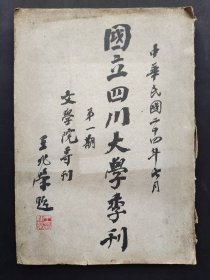 中華民國二十四年七月
國立四川大學季刊
第一期
文學院專刊
王兆榮題